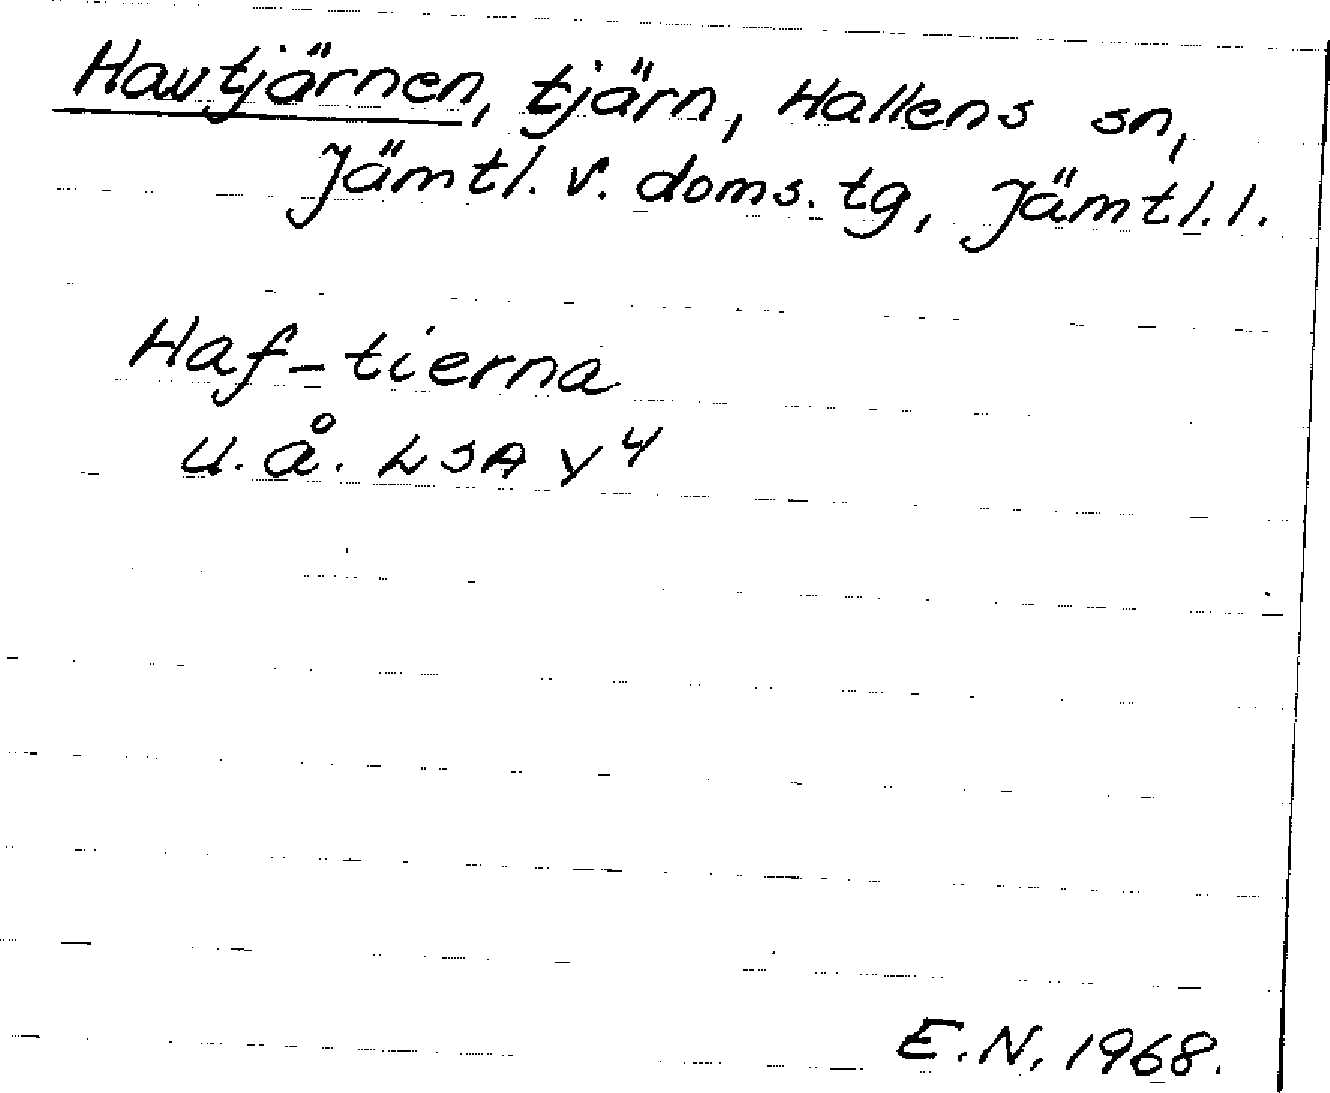 Havtjärnen, tjärn, Hallens sn,
Jämtl. v. doms. tg, Jämtl. l.
Haf-tierna
u. å. LSA Y 4
E.N. 1968.